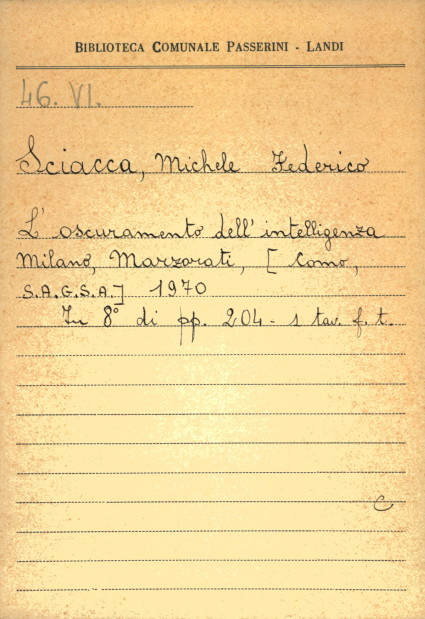 BIBLIOTECA COMUNALE PASSERINI - LANDI
46. VI.
Sciacca, Michele Federico
L'oscuramento dell'intelligenza
Milano, Marzorati, [Como,
S.A.G.S.A.] 1970
In 8° di pp. 204 - 1 tav. f. t.
C